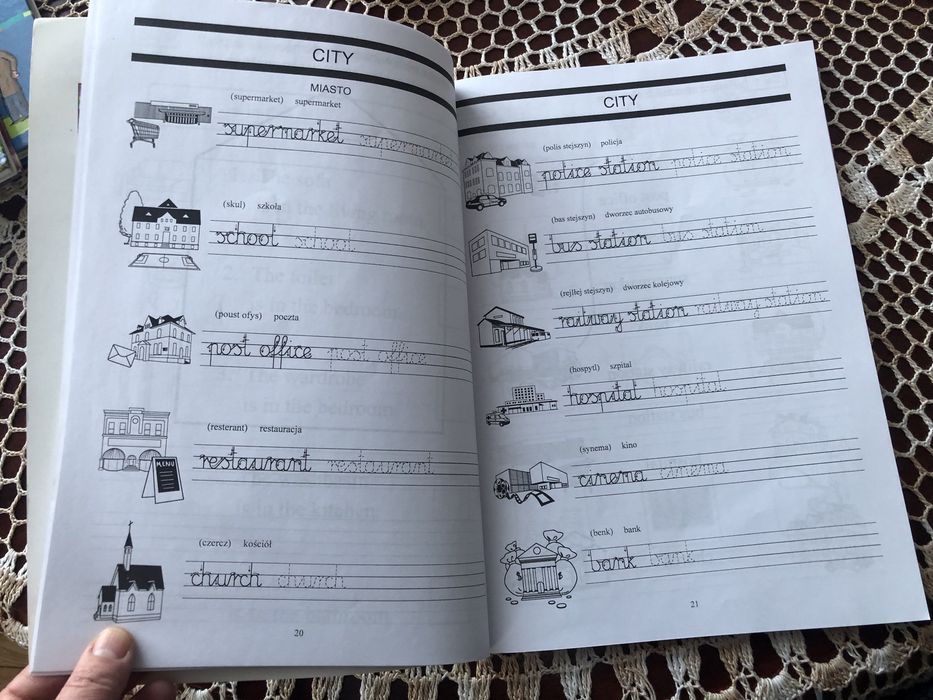 CITY
MIASTO
(supermarket) supermarket
supermarket supermarket
(skul) szkoła
school school
(poust ofys) poczta
post office post office
(resterant) restauracja
MENU
restaurant restaurant
(czercz) kościół
church church
20
CITY
(polis stejszyn) policja
police station police station
(bas stejszyn) dworzec autobusowy
bus station bus station
(rejlłej stejszyn) dworzec kolejowy
railway station railway station
(hospytl) szpital
hospital hospital
(synema) kino
cinema cinema
(benk) bank
bank bank
21